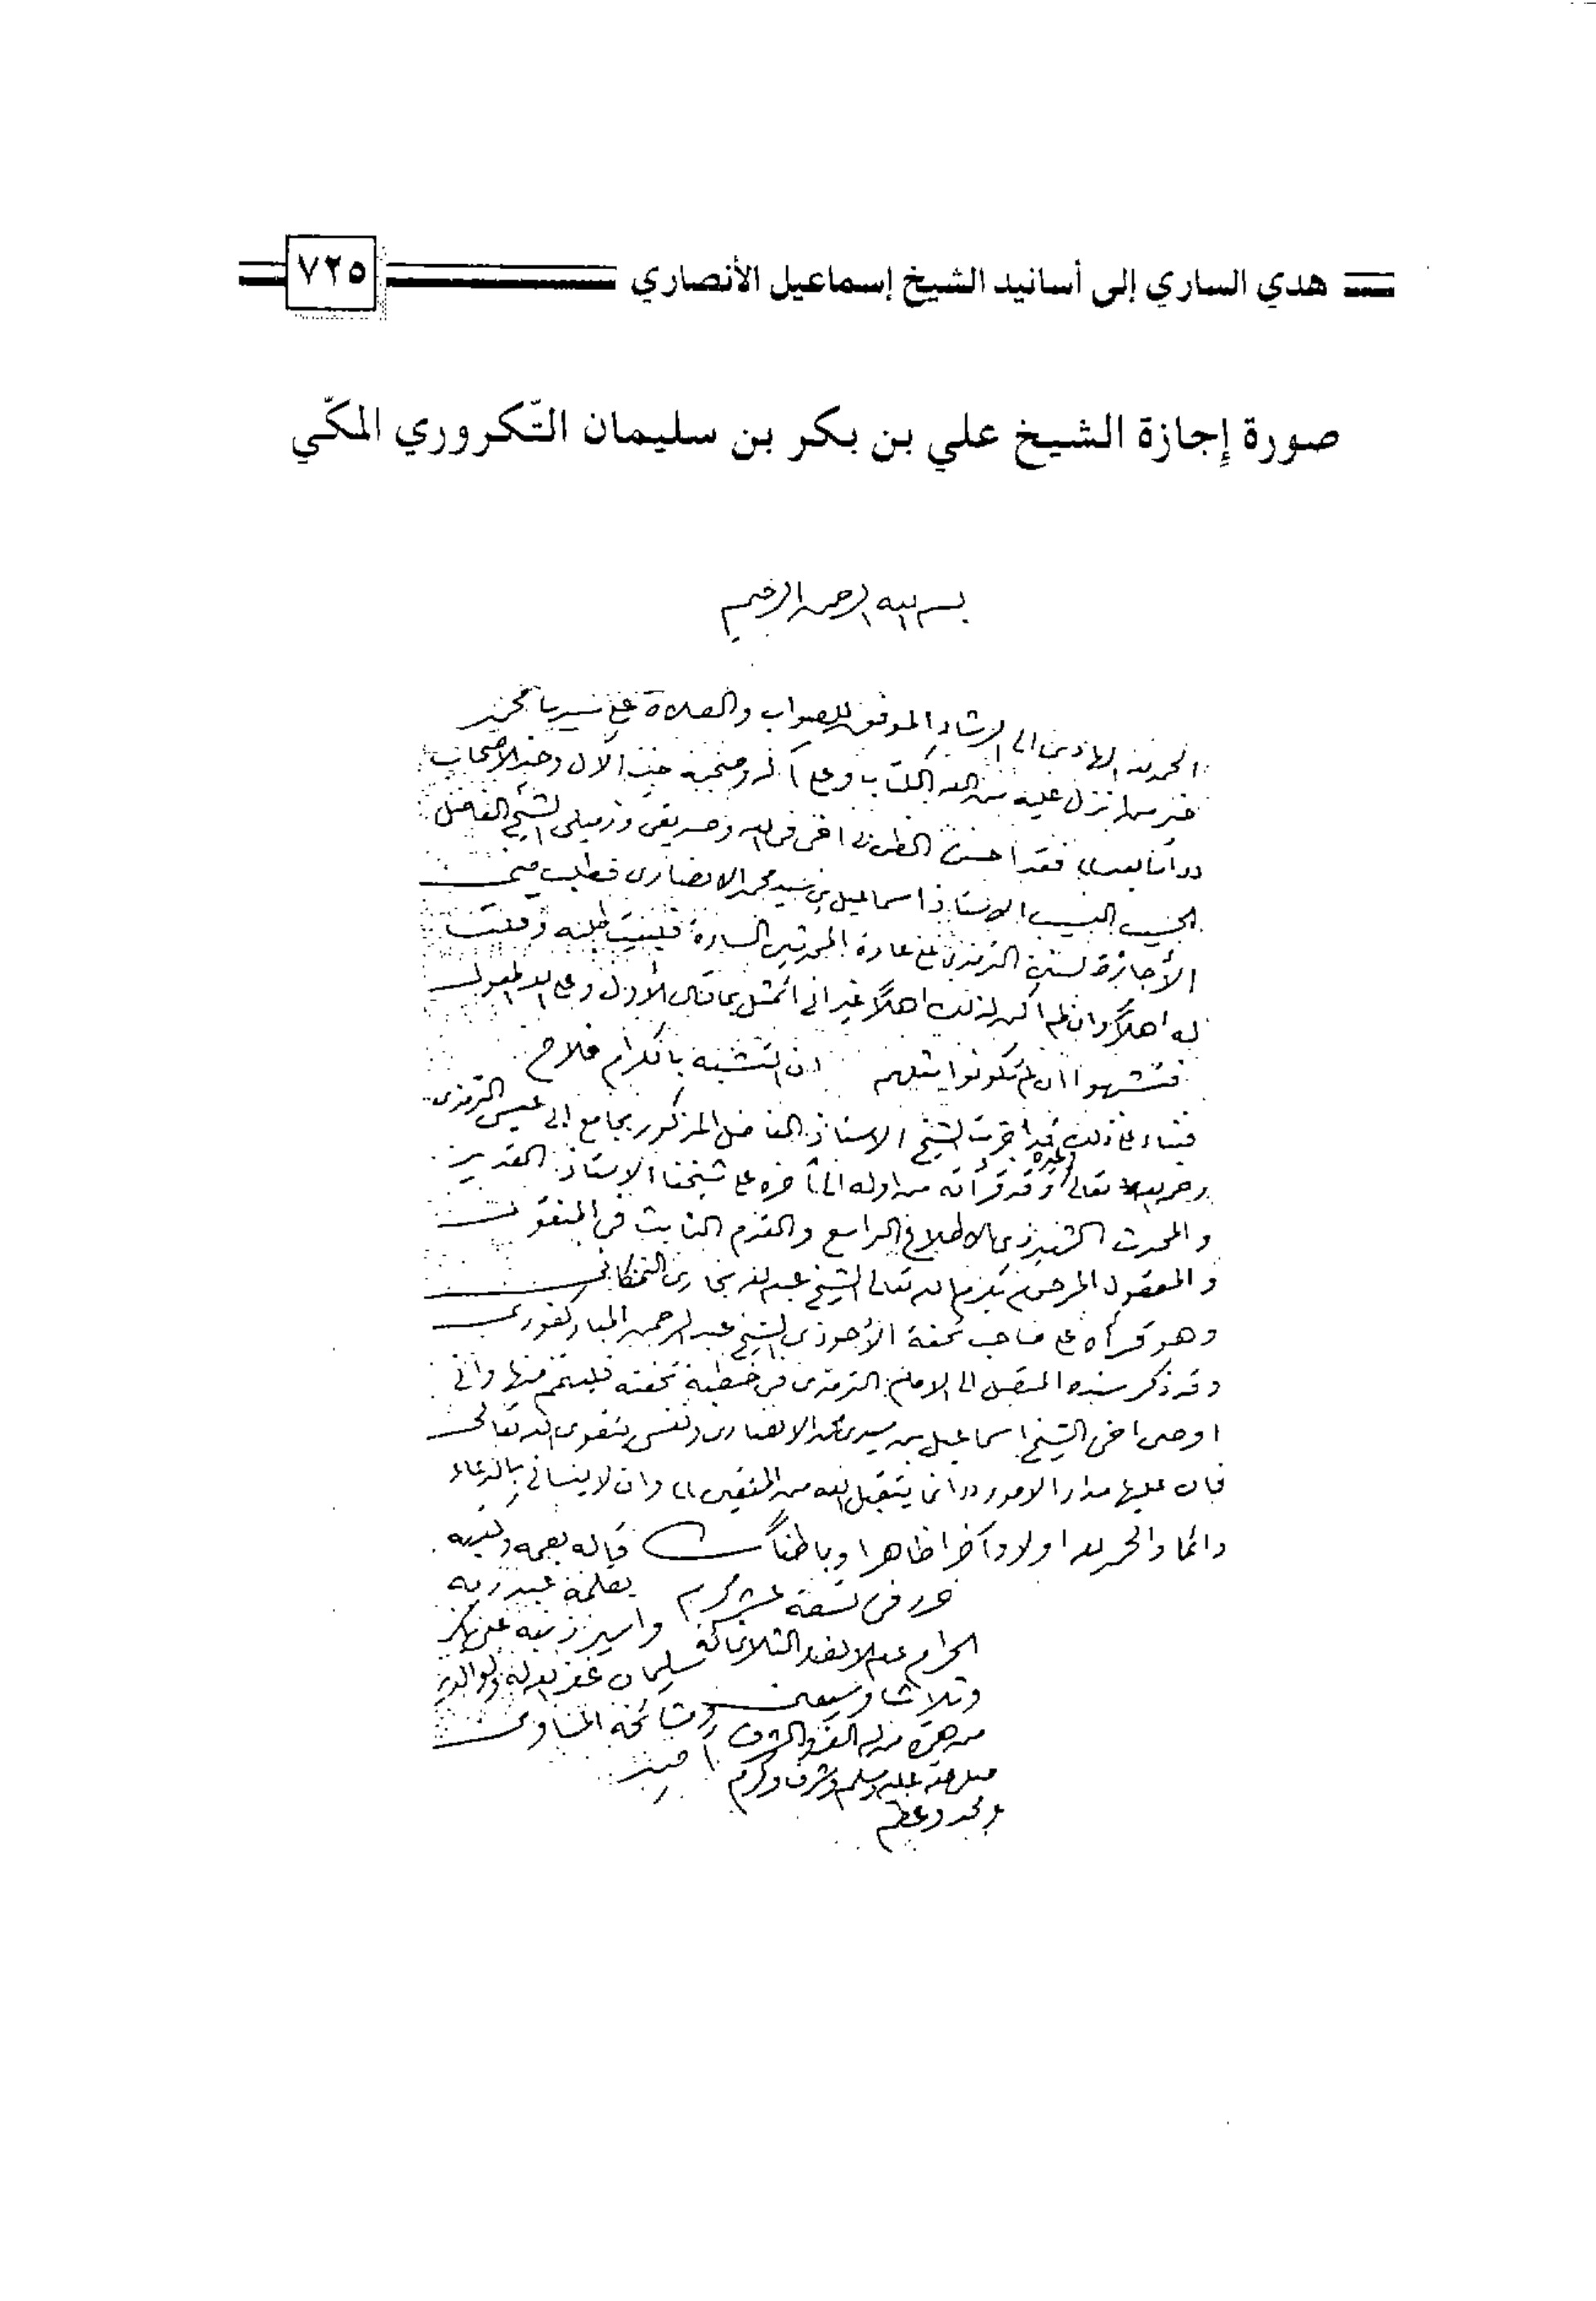 هدي الساري إلى أسانيد الشيخ إسماعيل الأنصاري ٧٢٥
صورة إجازة الشيخ علي بن بكر بن سليمان التّكروري المكّي
بسم الله الرحمن الرحيم
الحمد لله الهادى الى الرشاد الموفق للصواب والصلاة على سيدنا محمد
خير من نزل عليه من الله الكتاب وعلى آله وصحبه خير الآل وخير الأصحاب
((أما بعد)) فقد احسن الظن بى اخى فى الله وصديقى وزميلى الشيخ الفاضل
الحسيب النسيب الاستاذ اسماعيل بن سيد محمد الانصارى فطلب منى
الأجازة لسنن الترمذى على عادة المحدثين السادة فلبيت طلبه وقلت
له اهلاً وان لم اكن لذلك اهلاً غير انى اتمثل بما قال الأول وعلى الله المعول
فتشبهوا ان لم تكونوا مثلهم ان التشبه بالكرام فلاح
فبناء على ذلك قد اجزت الشيخ الاستاذ الفاضل المذكور بجامع ابى عيسى الترمذى
رحمه الله تعالى وغيره وقد قرأته من اوله الى آخره على شيخنا الاستاذ القدير
والمحدث الشهير ذى الاطلاع الواسع والقدم الثابت فى المنقول
والمعقول المرحوم بكرم الله تعالى الشيخ عبد الله بخارى النمنكانى
وهو قرأه على صاحب تحفة الأحوذى الشيخ عبد الرحمن المباركفورى
وقد ذكر سنده المتصل الى الامام الترمذى فى خطبة تحفته فليتم منها وانى
اوصى اخى الشيخ اسماعيل بن سيدى محمد الانصارى ونفسى بتقوى الله تعالى
فان عليها مدار الامور ((انما يتقبل الله من المتقين)) وان لا ينسانى بالدعاء
دائما والحمد لله اولا وآخرا ظاهرا وباطنا قاله بفمه وكتبه
بقلمه عبد ربه
واسير ذنبه على بكر
سليمان غفر الله له ولوالديه
ومشائخه
آمين
حرر فى تسعة عشر محرم
الحرام عام الالف والثلاثمائة
وثلاث وسبعين
من هجرة من له العز والشرف
صلى الله عليه وسلم وشرف وكرم
ومجد وعظم